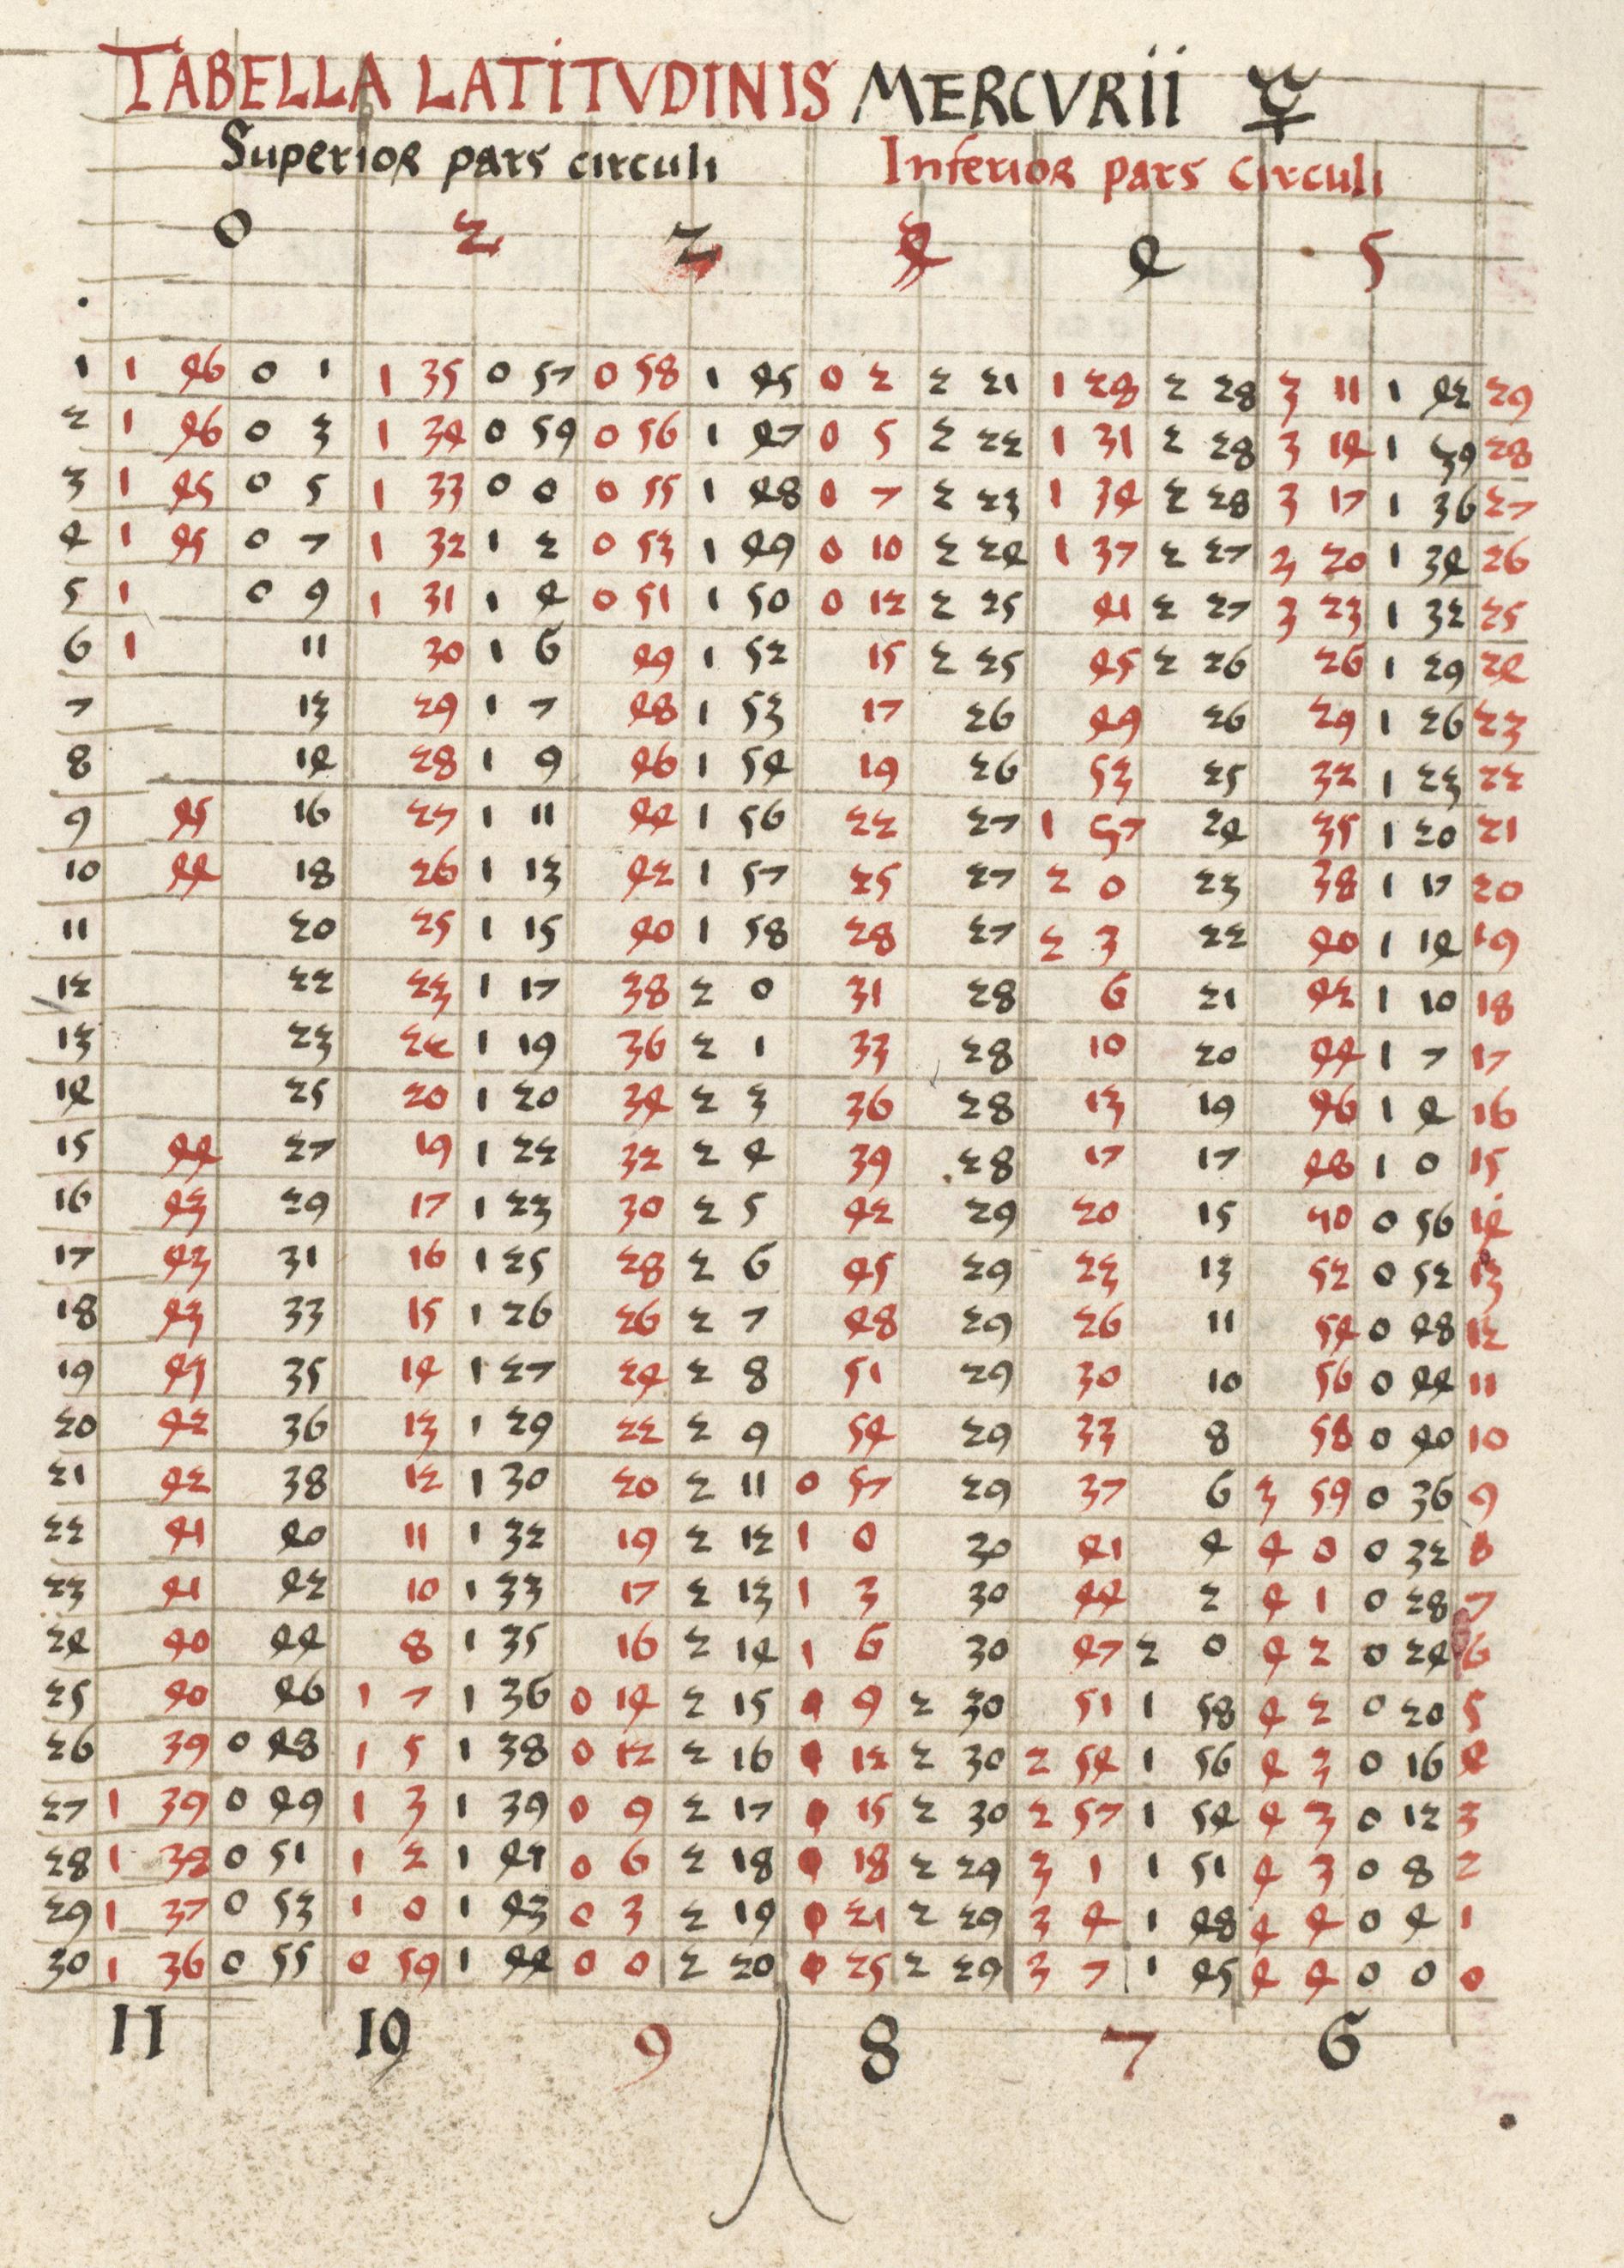 TABELLA LATITVDINIS MERCVRII ☿
Superior pars circuli Inferior pars circuli
0 2 4 5
1 1 46 0 1 1 35 0 57 0 58 1 45 0 2 2 21 1 28 2 28 3 11 1 42 29
2 1 46 0 3 1 34 0 59 0 56 1 47 0 5 2 22 1 31 2 28 3 14 1 39 28
3 1 45 0 5 1 33 0 0 0 55 1 48 0 7 2 23 1 34 2 28 3 17 1 36 27
4 1 45 0 7 1 32 1 2 0 53 1 49 0 10 2 24 1 37 2 27 3 20 1 34 26
5 1 0 9 1 31 1 4 0 51 1 50 0 12 2 25 41 2 27 3 23 1 32 25
6 1 11 30 1 6 49 1 52 15 2 25 45 2 26 26 1 29 24
7 13 29 1 7 48 1 53 17 26 49 26 29 1 26 23
8 14 28 1 9 46 1 54 19 26 53 25 32 1 23 22
9 45 16 27 1 11 44 1 56 22 27 1 57 24 35 1 20 21
10 44 18 26 1 13 42 1 57 25 27 2 0 23 38 1 17 20
11 20 25 1 15 40 1 58 28 27 2 3 22 40 1 14 19
12 22 23 1 17 38 2 0 31 28 6 21 42 1 10 18
13 23 22 1 19 36 2 1 33 28 10 20 44 1 7 17
14 25 20 1 20 34 2 3 36 28 13 19 46 1 4 16
15 44 27 19 1 22 32 2 4 39 28 17 17 48 1 0 15
16 43 29 17 1 23 30 2 5 42 29 20 15 0 56 14
17 43 31 16 1 25 28 2 6 45 29 23 13 52 0 52 13
18 43 33 15 1 26 26 2 7 48 29 26 11 54 0 48 12
19 43 35 14 1 27 24 2 8 51 29 30 10 56 0 44 11
20 42 36 13 1 29 22 2 9 54 29 33 8 58 0 40 10
21 42 38 12 1 30 20 2 11 0 57 29 37 6 3 59 0 36 9
22 41 40 11 1 32 19 2 12 1 0 30 41 4 4 0 0 32 8
23 41 42 10 1 33 17 2 13 1 3 30 44 2 4 1 0 28 7
24 40 44 8 1 35 16 2 14 1 6 30 47 2 0 4 2 0 24 6
25 40 46 1 7 1 36 0 14 2 15 9 2 30 51 1 58 4 2 0 20 5
26 39 0 48 1 5 1 38 0 12 2 16 12 2 30 2 54 1 56 4 3 0 16 4
27 1 39 0 49 1 3 1 39 0 9 2 17 15 2 30 2 57 1 54 4 3 0 12 3
28 1 38 0 51 1 2 1 41 0 6 2 18 18 2 29 3 1 1 51 4 3 0 8 2
29 1 37 0 53 1 0 1 43 0 3 2 19 21 2 29 3 4 1 48 4 4 0 4 1
30 1 36 0 55 0 59 1 44 0 0 2 20 25 2 29 3 7 1 45 4 4 0 0 0
11 10 9 8 7 6